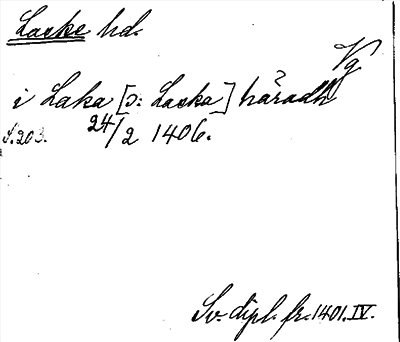 Laske hd.
Vg
i Laka [ɔ: Laska] häradh
s. 203. 24/2 1406.
Sv. dipl. fr. 1401. IV.